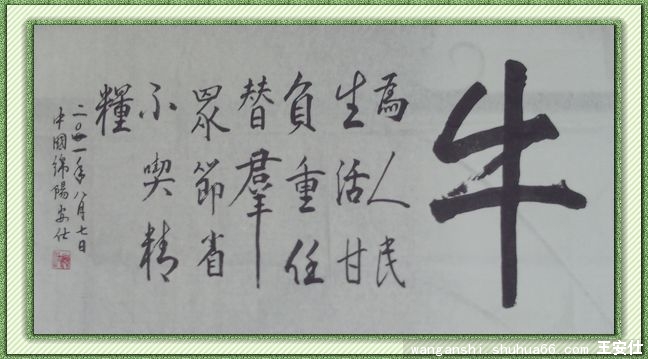 牛
為人民
生活甘
負重任
替羣
眾節省
不喫精
糧
二〇一一年八月七日
中國綿陽安仕
wanganshi.shuhua66.com 王安仕